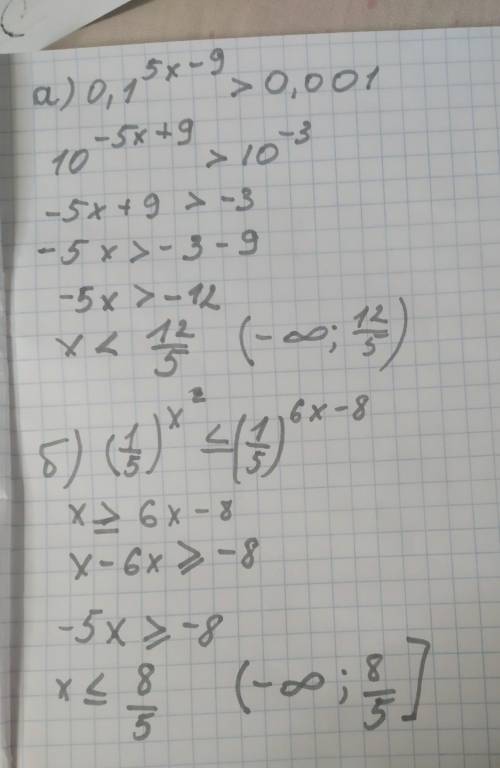 а) 0,1^{5x-9} > 0,001
10^{-5x+9} > 10^{-3}
-5x+9 > -3
-5x > -3-9
-5x > -12
x < 12/5 (-∞; 12/5)
б) (1/5)^{x^2} ≤ (1/5)^{6x-8}
x ≥ 6x-8
x-6x ≥ -8
-5x ≥ -8
x ≤ 8/5 (-∞; 8/5]